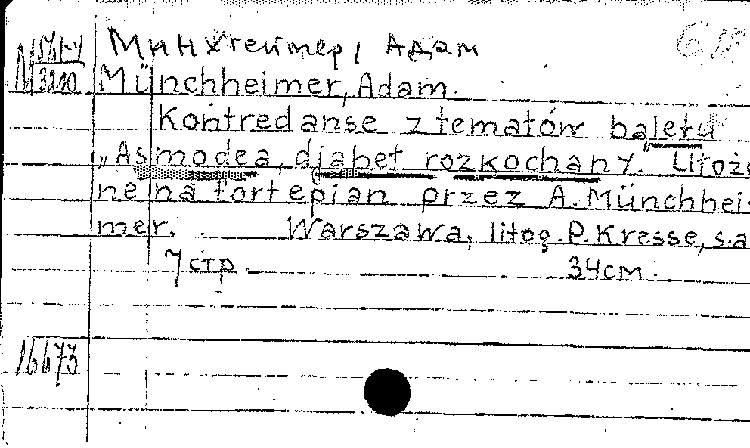 Минхеймер, Адам
Münchheimer, Adam.
Kontredanse z tematów baletu
„Asmodea, djabeł rozkochany." Ułożo
ne na fortepian przez A. Münchhei-
mer. Warszawa, litog. P. Kresse, s.a
7 стр. 34см.
16673